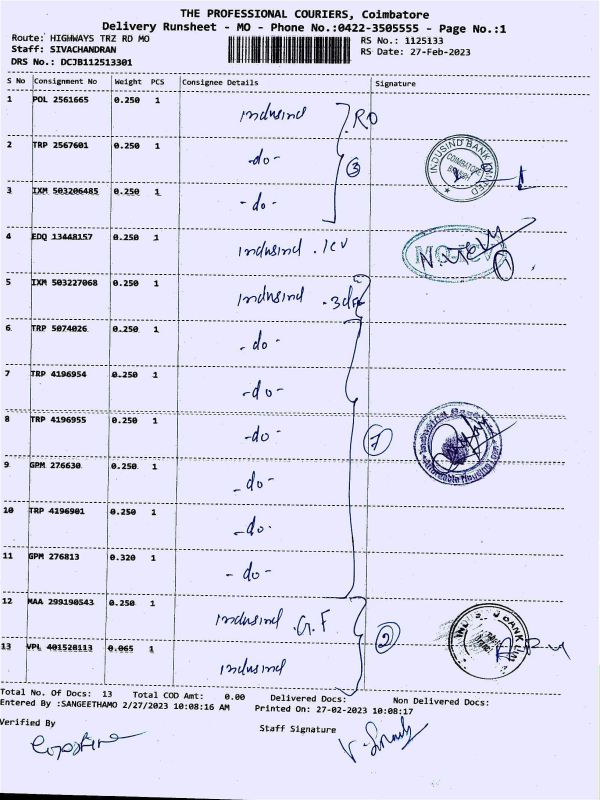 THE PROFESSIONAL COURIERS, Coimbatore
Delivery Runsheet - MO - Phone No.:0422-3505555 - Page No.:1
Route: HIGHWAYS TRZ RD MO
RS No.: 1125133
Staff: SIVACHANDRAN
RS Date: 27-Feb-2023
DRS No.: DCJB112513301
S No Consignment No Weight PCS Consignee Details Signature
1 POL 2561665 0.250 1 indusind RO
2 TRP 2567601 0.250 1 -do- 3
INDUSIND BANK LIMITED
COIMBATORE
3 IXM 503206485 0.250 1 -do-
4 EDQ 13448157 0.250 1 indusind . ICU
5 IXM 503227068 0.250 1 indusind
6 TRP 5074026 0.250 1 -do-
7 TRP 4196954 0.250 1 -do-
8 TRP 4196955 0.250 1 -do- 7
Affordable Housing Loan
9 GPM 276630 0.250 1 -do-
10 TRP 4196901 0.250 1 -do-
11 GPM 276813 0.320 1 -do-
12 MAA 299190543 0.250 1 indusind .G.F 2
13 VPL 401528113 0.065 1 indusind
Total No. Of Docs: 13 Total COD Amt: 0.00 Delivered Docs: Non Delivered Docs:
Entered By :SANGEETHAMO 2/27/2023 10:08:16 AM Printed On: 27-02-2023 10:08:17
Verified By
Staff Signature